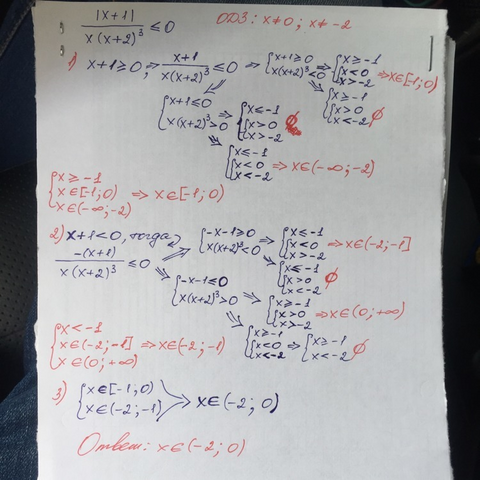 |x+1| / x(x+2)³ ≤ 0   ОДЗ: x≠0; x≠-2
1) x+1≥0, ⇒ x+1 / x(x+2)³ ≤ 0 ⇒ {x+1≥0 x(x+2)³<0 ⇒ {x≥-1 {x<0 x>-2 ⇒ x∈[-1;0)
{x≥-1 {x>0 x<-2 ∅
{x+1≤0 x(x+2)³>0 ⇒ {x≤-1 {x>0 x>-2 ∅
{x≤-1 {x<0 x<-2 ⇒ x∈(-∞;-2)
{x≥-1 x∈[-1;0) x∈(-∞;-2) ⇒ x∈[-1;0)
2) x+1<0, тогда
-(x+1) / x(x+2)³ ≤ 0 ⇒ {-x-1≥0 x(x+2)³<0 ⇒ {x≤-1 {x<0 x>-2 ⇒ x∈(-2;-1]
{x≤-1 {x>0 x<-2 ∅
{-x-1≤0 x(x+2)³>0 ⇒ {x≥-1 {x>0 x>-2 ⇒ x∈(0;+∞)
{x≥-1 {x<0 x<-2 ⇒ {x≥-1 x<-2 ∅
{x<-1 x∈(-2;-1] x∈(0;+∞) ⇒ x∈(-2;-1)
3) {x∈[-1;0) x∈(-2;-1) > x∈(-2;0)
Ответ: x∈(-2;0)